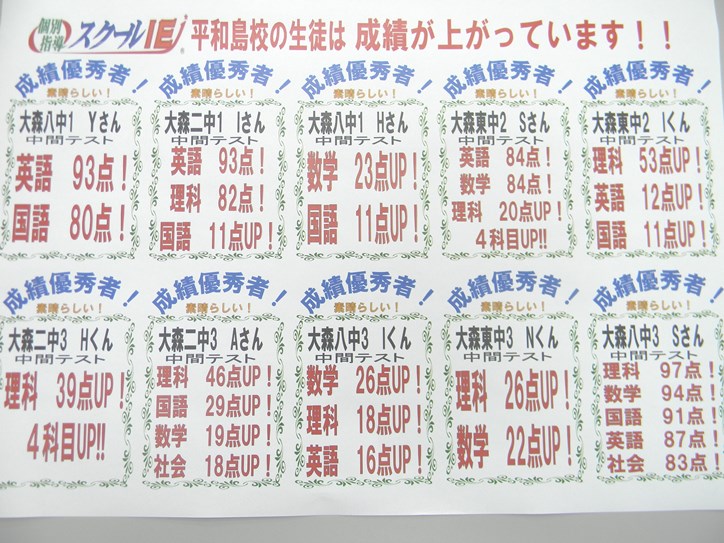 個別指導 スクールIE 平和島校の生徒は 成績が上がっています！！
成績優秀者！
素晴らしい！
大森八中1 Yさん
中間テスト
英語 93点！
国語 80点！
成績優秀者！
素晴らしい！
大森二中1 Iさん
中間テスト
英語 93点！
理科 82点！
国語 11点UP！
成績優秀者！
素晴らしい！
大森八中1 Hさん
中間テスト
数学 23点UP！
国語 11点UP！
成績優秀者！
素晴らしい！
大森東中2 Sさん
中間テスト
英語 84点！
数学 84点！
理科 20点UP！
4科目UP!!
成績優秀者！
素晴らしい！
大森東中2 Iくん
中間テスト
理科 53点UP！
英語 12点UP！
国語 11点UP！
成績優秀者！
素晴らしい！
大森二中3 Hくん
中間テスト
理科 39点UP！
4科目UP!!
成績優秀者！
素晴らしい！
大森二中3 Aさん
中間テスト
理科 46点UP！
国語 29点UP！
数学 19点UP！
社会 18点UP！
成績優秀者！
素晴らしい！
大森八中3 Iくん
中間テスト
数学 26点UP！
理科 18点UP！
英語 16点UP！
成績優秀者！
素晴らしい！
大森東中3 Nくん
中間テスト
理科 26点UP！
数学 22点UP！
成績優秀者！
素晴らしい！
大森八中3 Sさん
中間テスト
理科 97点！
数学 94点！
国語 91点！
英語 87点！
社会 83点！